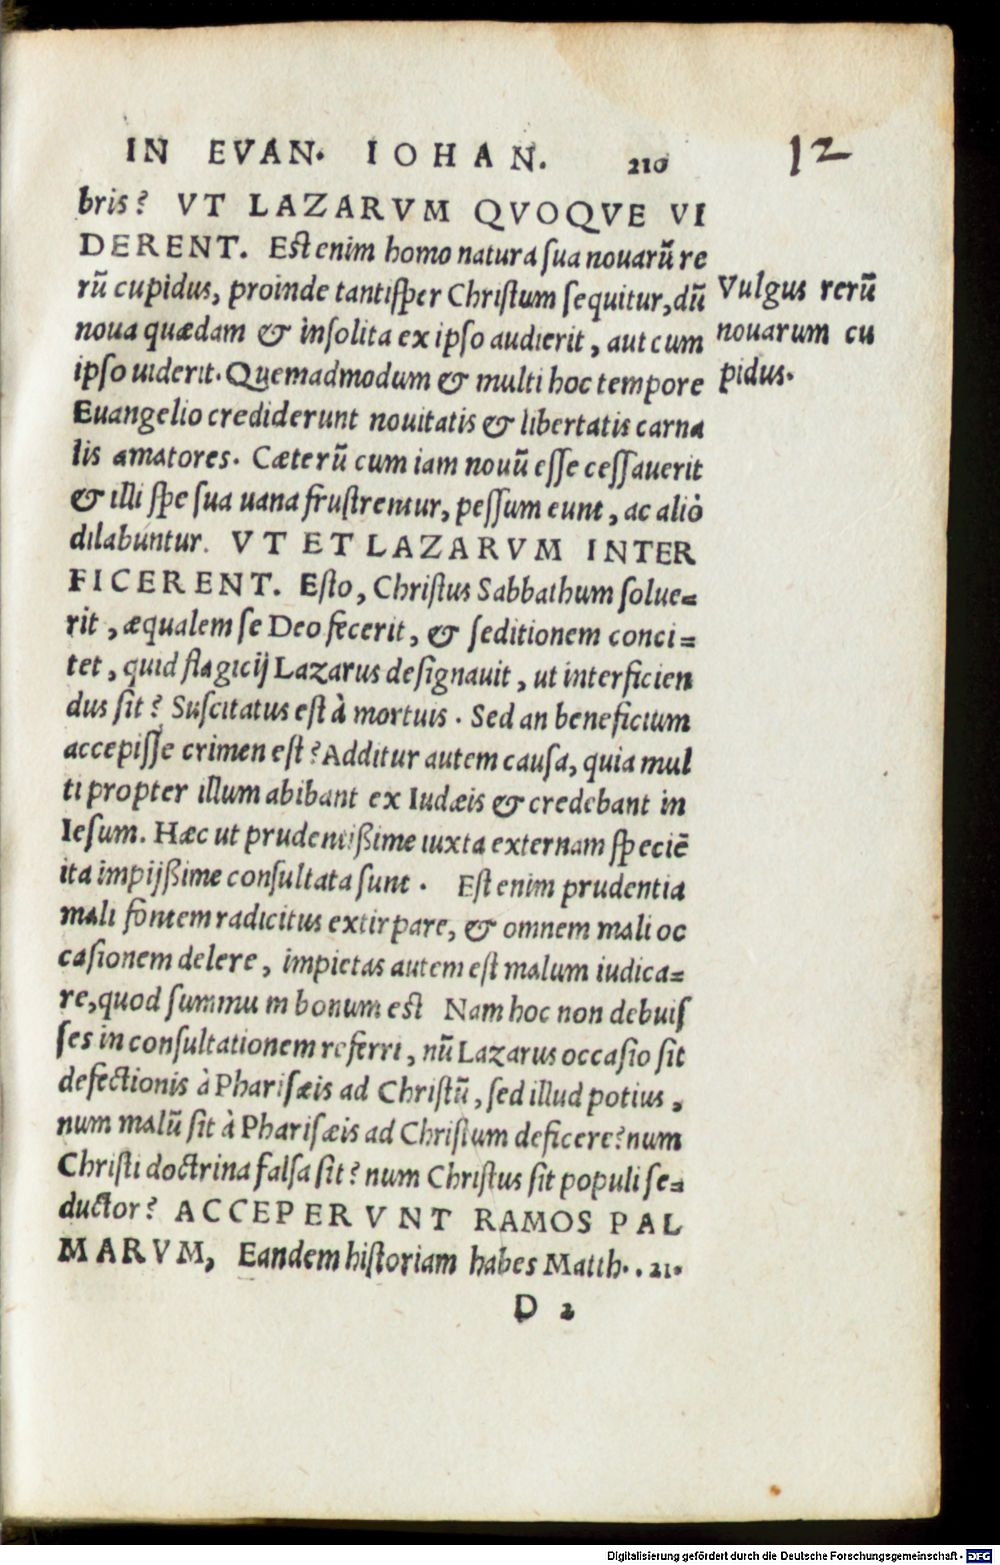 IN EVAN. IOHAN. 210
12
bris? VT LAZARVM QVOQVE VI
DERENT. Est enim homo natura sua nouarũ re
rũ cupidus, proinde tantisper Christum sequitur, dũ
noua quædam & insolita ex ipso audierit, aut cum
ipso uiderit. Quemadmodum & multi hoc tempore
Euangelio crediderunt nouitatis & libertatis carna
lis amatores. Cæterũ cum iam nouũ esse cessauerit
& illi spe sua uana frustrentur, pessum eunt, ac aliò
dilabuntur. VT ET LAZARVM INTER
FICERENT. Esto, Christus Sabbathum solue-
rit, æqualem se Deo fecerit, & seditionem conci-
tet, quid flagicij Lazarus designauit, ut interficien
dus sit? Suscitatus est à mortuis. Sed an beneficium
accepisse crimen est? Additur autem causa, quia mul
ti propter illum abibant ex Iudæis & credebant in
Iesum. Hæc ut prudentißime iuxta externam speciẽ
ita impijßime consultata sunt. Est enim prudentia
mali fontem radicitus extirpare, & omnem mali oc
casionem delere, impietas autem est malum iudica-
re, quod summu m bonum est Nam hoc non debuis
ses in consultationem referri, nũ Lazarus occasio sit
defectionis à Pharisæis ad Christũ, sed illud potius,
num malũ sit à Pharisæis ad Christum deficere? num
Christi doctrina falsa sit? num Christus sit populi se-
ductor? ACCEPERVNT RAMOS PAL
MARVM, Eandem historiam habes Matth.. 21.
D 2
Vulgus rerũ
nouarum cu
pidus.
Digitalisierung gefördert durch die Deutsche Forschungsgemeinschaft - DFG